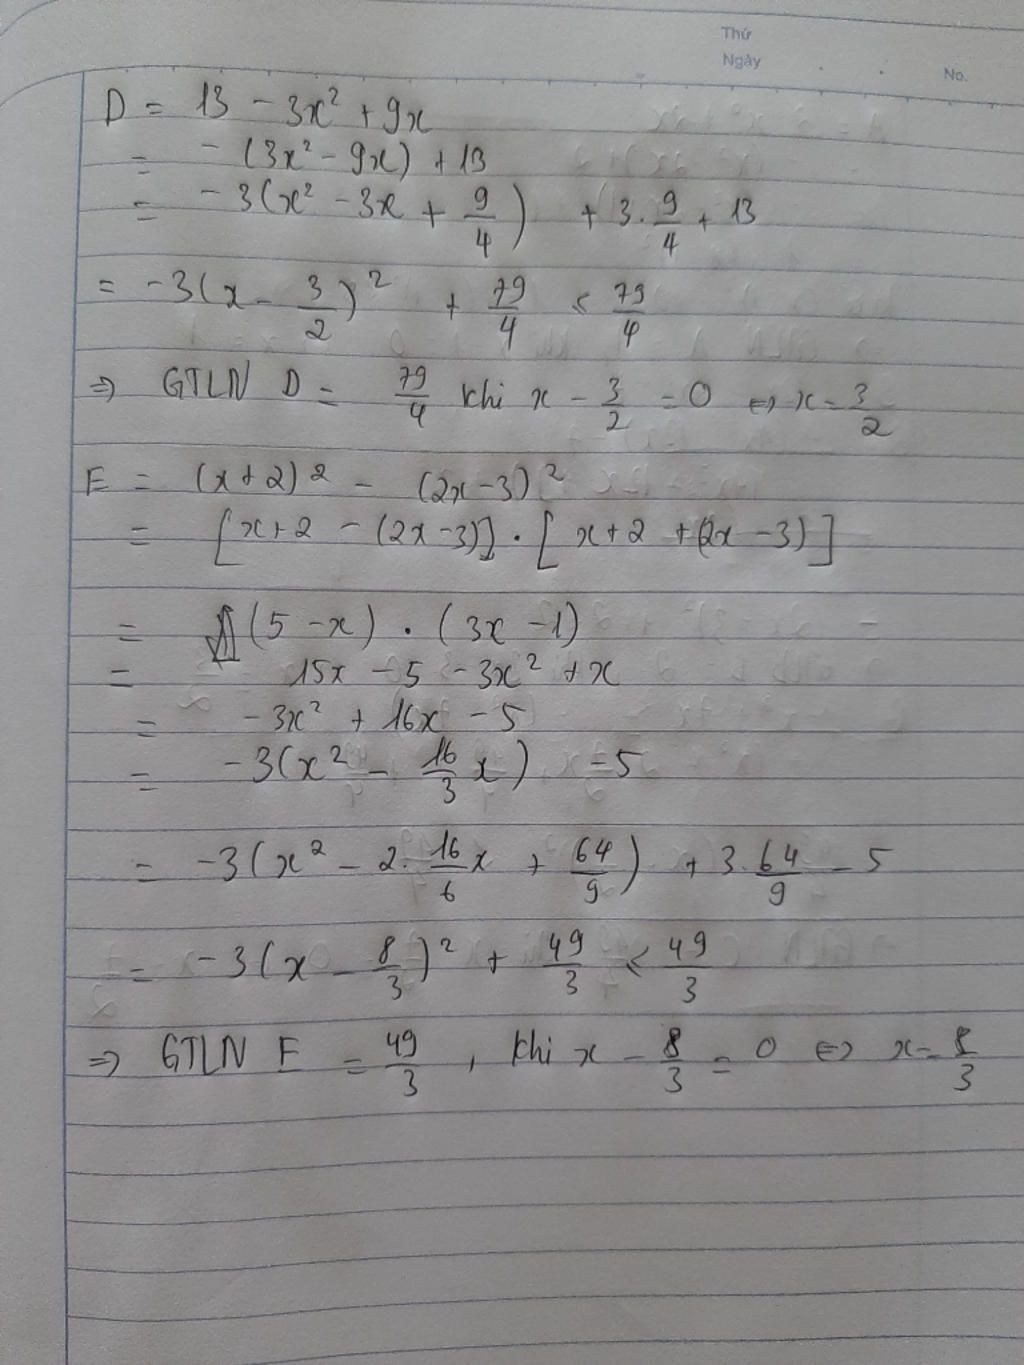 Thứ
Ngày . . No.
D = 13 - 3x² + 9x
= - (3x² - 9x) + 13
= - 3(x² - 3x + 9/4) + 3.9/4 + 13
= -3(x - 3/2)² + 79/4 ≤ 79/4
⇒ GTLN D = 79/4 khi x - 3/2 = 0 ⇔ x = 3/2
E = (x+2)² - (2x-3)²
= [x+2 - (2x-3)] . [x+2 + (2x-3)]
= (5 - x) . (3x - 1)
= 15x - 5 - 3x² + x
= - 3x² + 16x - 5
= -3(x² - 16/3 x) - 5
= -3(x² - 2.16/6 x + 64/9) + 3.64/9 - 5
= -3(x - 8/3)² + 49/3 ≤ 49/3
⇒ GTLN E = 49/3, khi x - 8/3 = 0 ⇔ x = 8/3